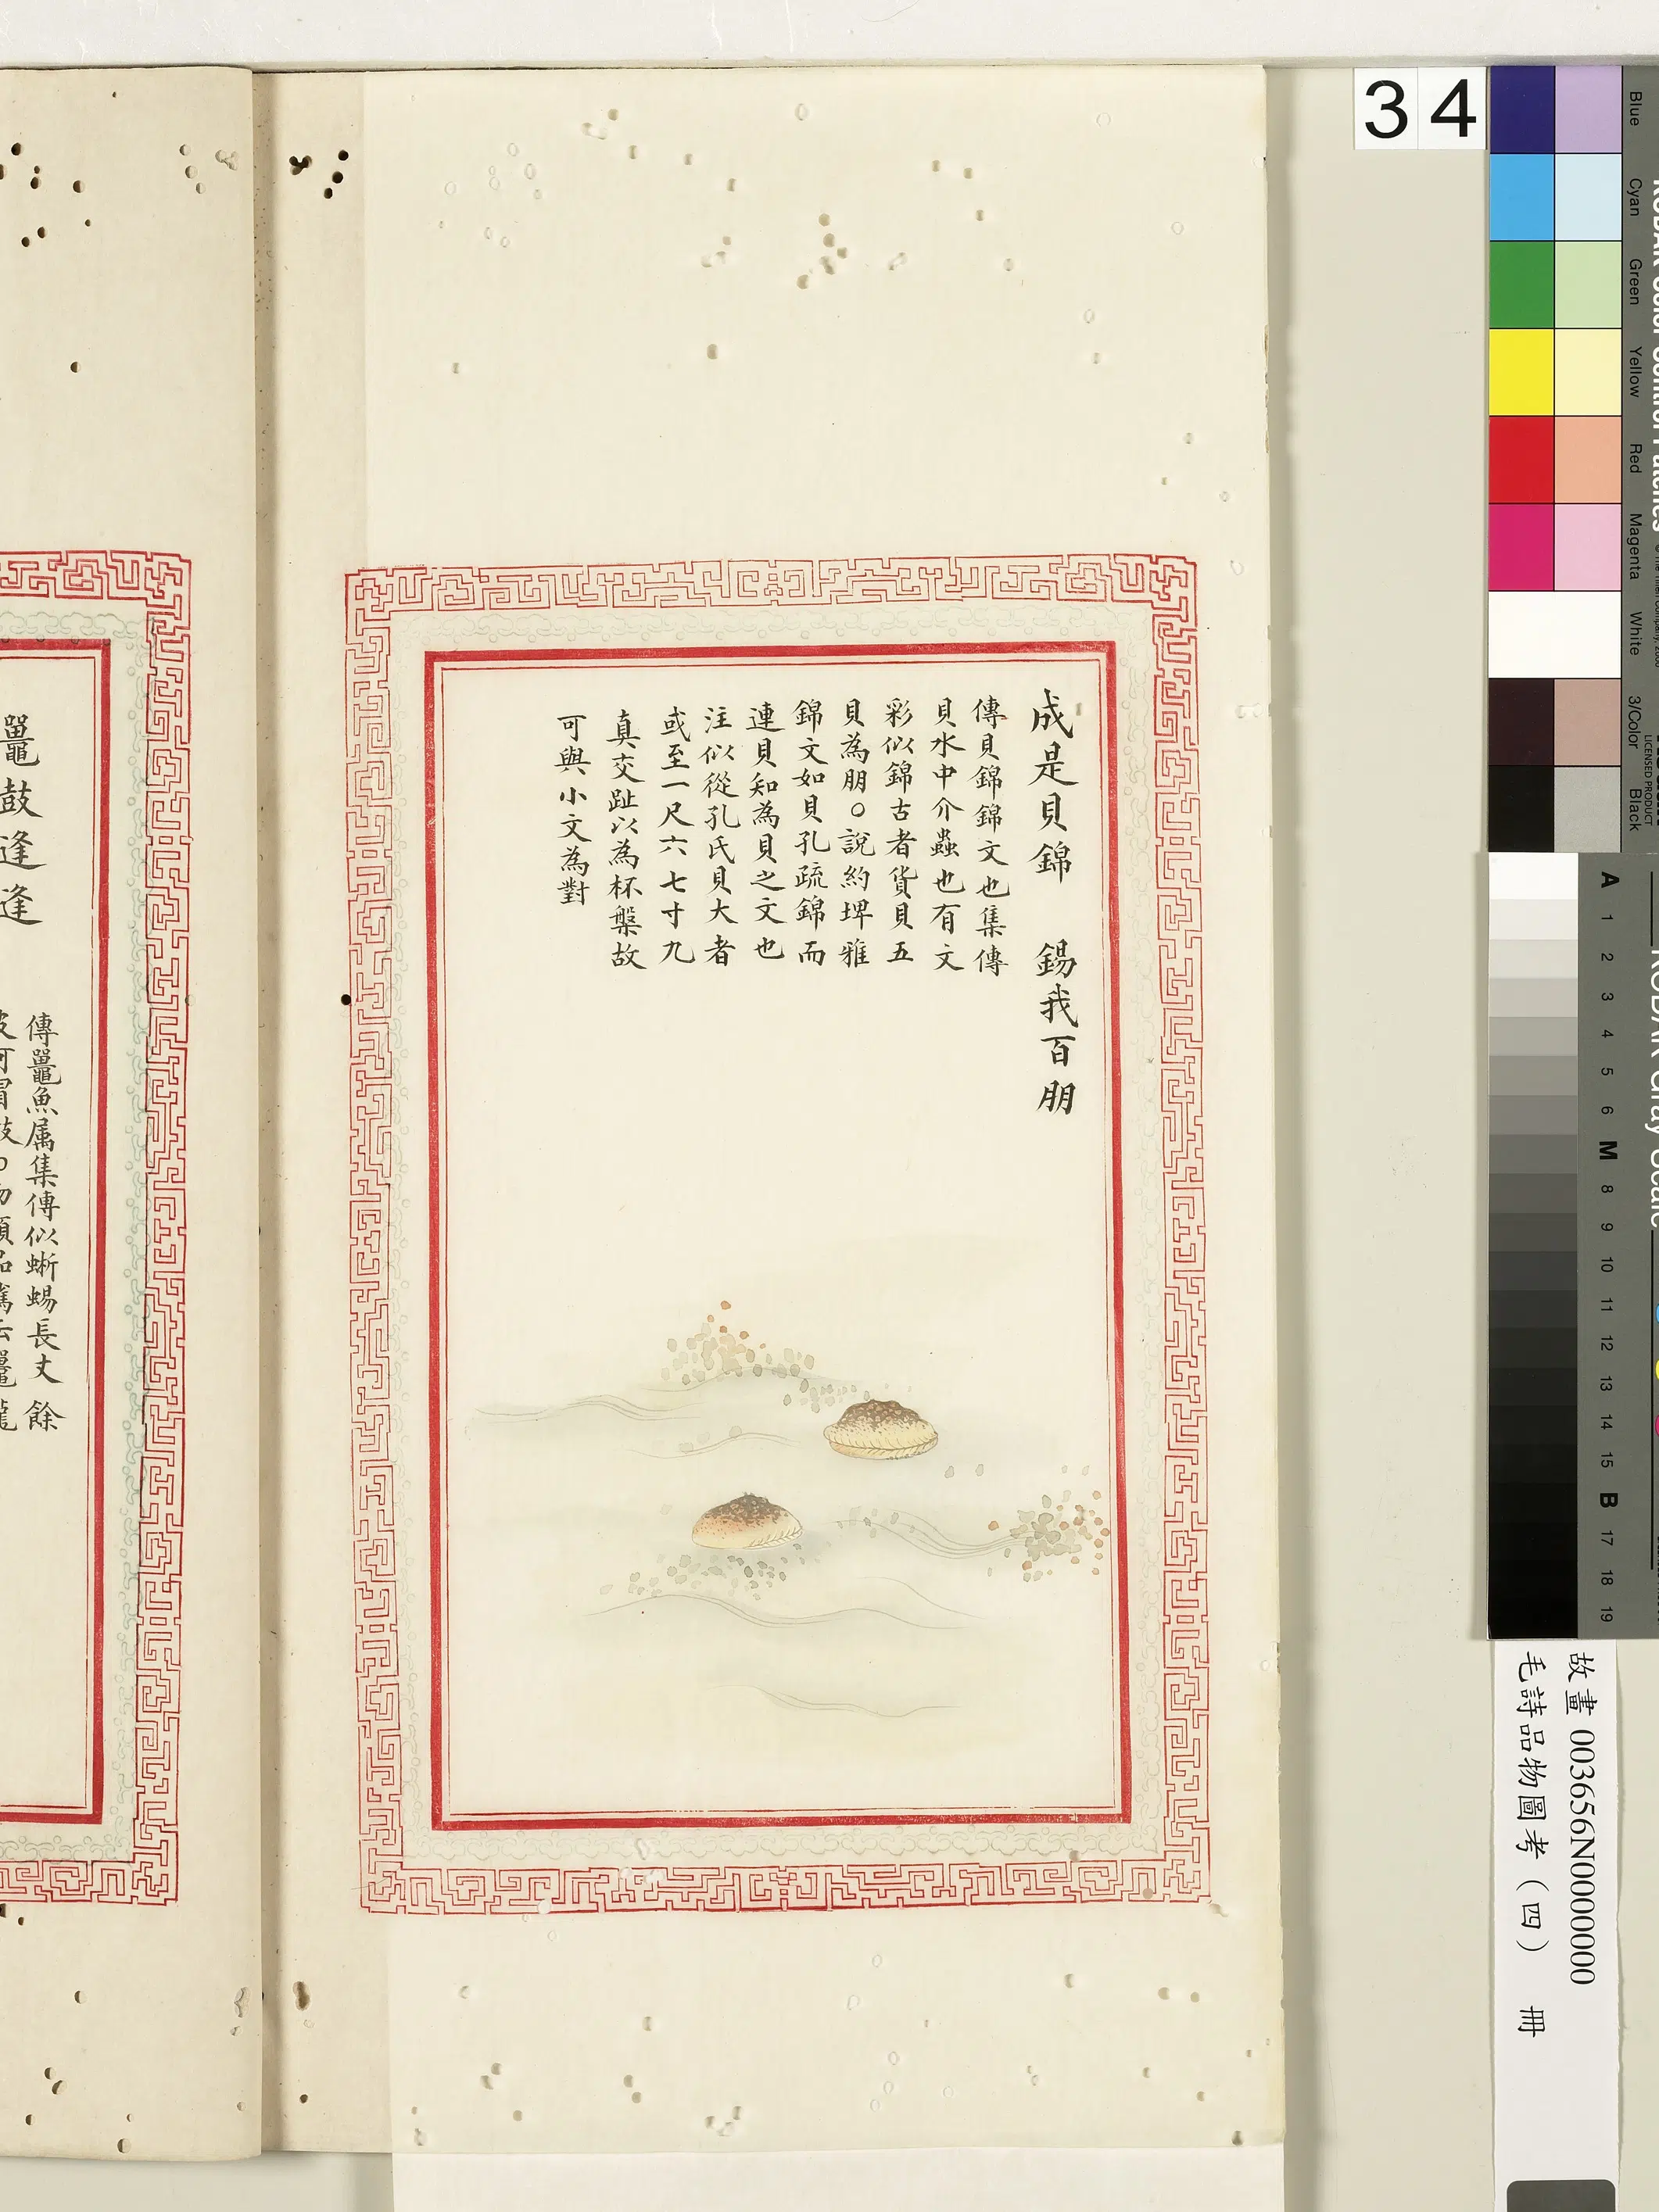 34
成是貝錦　錫我百朋
傳貝錦錦文也集傳
貝水中介蟲也有文
彩似錦古者貨貝五
貝為朋○說約埤雅
錦文如貝孔疏錦而
連貝知為貝之文也
注似從孔氏貝大者
或至一尺六七寸九
真交趾以為杯槃故
可與小文為對
鼉鼓逢逢
傳鼉魚属集傳似蜥蜴長丈餘
Blue
Cyan
Green
Yellow
Red
Magenta
White
3/Color
Black
LICENSED PRODUCT
KODAK Color Control Patches
KODAK Gray Scale
A 1 2 3 4 5 6 M 8 9 10 11 12 13 14 15 B 17 18 19
故畫 003656N000000000
毛詩品物圖考（四） 冊